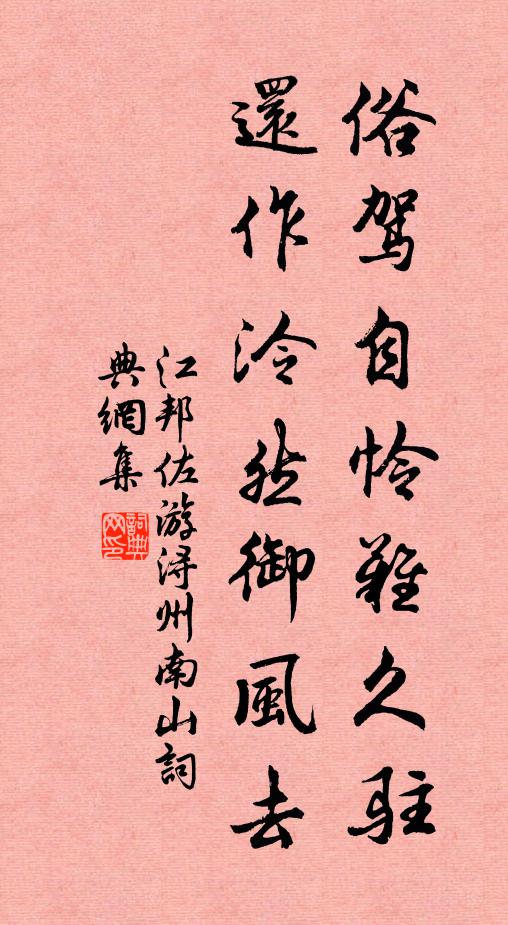 俗駕自怜難久駐
還作泠然御風去
江邦佐游浔州南山詞
典網集
詞典網印